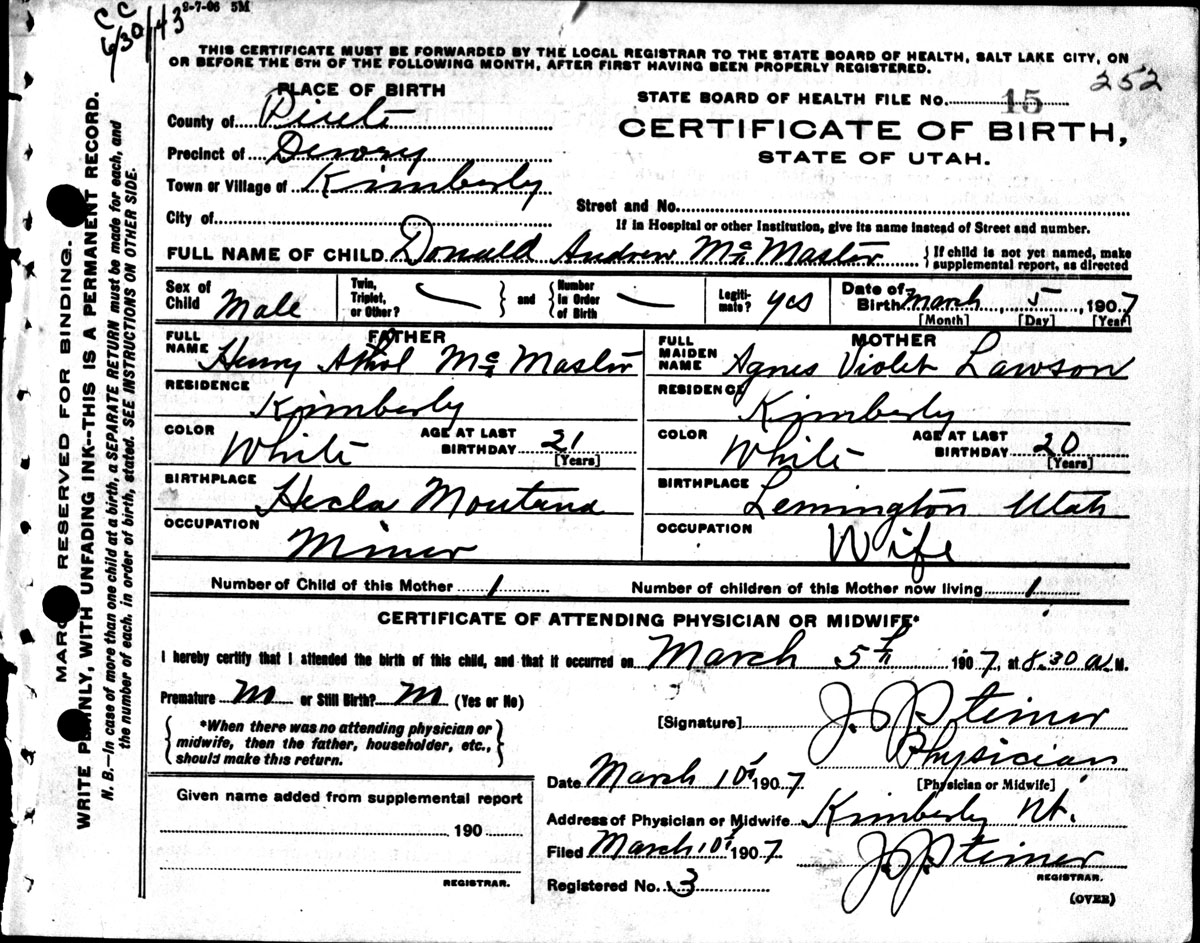 C C
6/30/43
9-7-06 5M
THIS CERTIFICATE MUST BE FORWARDED BY THE LOCAL REGISTRAR TO THE STATE BOARD OF HEALTH, SALT LAKE CITY, ON
OR BEFORE THE 5TH OF THE FOLLOWING MONTH, AFTER FIRST HAVING BEEN PROPERLY REGISTERED.
252
PLACE OF BIRTH
STATE BOARD OF HEALTH FILE NO. 15
County of Piute
CERTIFICATE OF BIRTH,
STATE OF UTAH.
Precinct of
Town or Village of Kimberly
Street and No.
City of
If in Hospital or other Institution, give its name instead of Street and number.
FULL NAME OF CHILD Donald Andrew McMaster {If child is not yet named, make
supplemental report, as directed
Sex of Child Male Twin, Triplet, or Other? } and { Number in Order of Birth Legitimate? yes Date of Birth March 5, 1907
[Month] [Day] [Year]
FATHER
FULL NAME Henry Athol McMaster
RESIDENCE
Kimberly
COLOR White AGE AT LAST BIRTHDAY 21
[Years]
BIRTHPLACE
Hecla Montana
OCCUPATION
Miner
MOTHER
FULL MAIDEN NAME Agnes Violet Lawson
RESIDENCE
Kimberly
COLOR White AGE AT LAST BIRTHDAY 20
[Years]
BIRTHPLACE
Lemington Utah
OCCUPATION
Wife
Number of Child of this Mother 1 Number of children of this Mother now living 1
CERTIFICATE OF ATTENDING PHYSICIAN OR MIDWIFE*
I hereby certify that I attended the birth of this child, and that it occurred on March 5th 1907, at 8.30 a.M.
Premature No or Still Birth? No (Yes or No)
{ *When there was no attending physician or
midwife, then the father, householder, etc.,
should make this return. }
[Signature] J. P. Steiner
Physician
[Physician or Midwife]
Date March 10th 1907
Address of Physician or Midwife Kimberly Ut.
Filed March 10th 1907 J. P. Steiner
REGISTRAR.
Registered No. 3
(OVER)
Given name added from supplemental report
190
REGISTRAR.
MARGIN RESERVED FOR BINDING.
WRITE PLAINLY, WITH UNFADING INK--THIS IS A PERMANENT RECORD.
N. B.--In case of more than one child at a birth, a SEPARATE RETURN must be made for each, and
the number of each, in order of birth, stated. SEE INSTRUCTIONS ON OTHER SIDE.